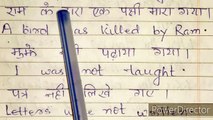 राम के द्वारा एक पक्षी मारा गया।
A bird was killed by Ram.
मुझे नहीं पढ़ाया गया।
I was not taught.
पत्र नहीं लिखे गए।
Letters were not
PowerDirector